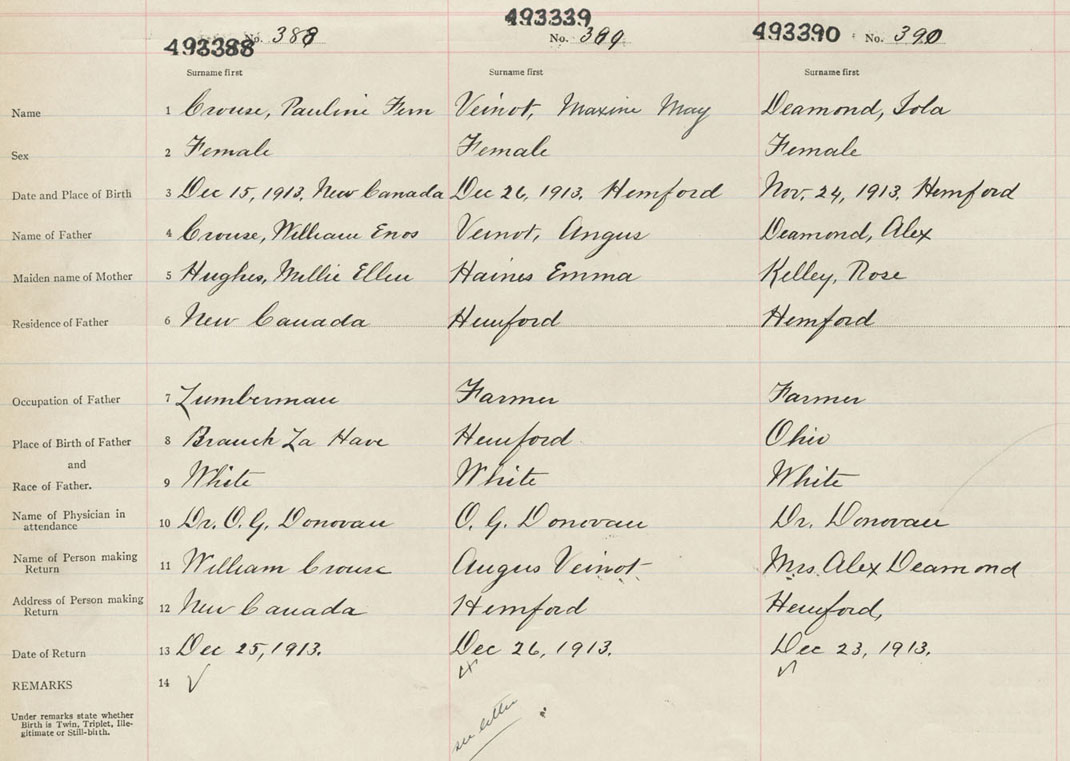 493388 No. 388 493339 No. 389 493390 No. 390
Surname first Surname first Surname first
Name 1 Crouse, Pauline Fern Veinot, Maxine May Deamond, Lola
Sex 2 Female Female Female
Date and Place of Birth 3 Dec 15, 1913. New Canada Dec 26, 1913. Hemford Nov. 24, 1913. Hemford
Name of Father 4 Crouse, William Enos Veinot, Angus Deamond, Alex
Maiden name of Mother 5 Hughes, Millie Ellen Haines Emma Kelley, Rose
Residence of Father 6 New Canada Hemford Hemford
Occupation of Father 7 Lumberman Farmer Farmer
Place of Birth of Father 8 Branch La Have Hemford Ohio
and
Race of Father. 9 White White White
Name of Physician in
attendance 10 Dr. O. G. Donovan O. G. Donovan Dr. Donovan
Name of Person making
Return 11 William Crouse Angus Veinot Mrs. Alex Deamond
Address of Person making
Return 12 New Canada Hemford Hemford,
Date of Return 13 Dec 25, 1913. Dec 26, 1913. Dec 23, 1913.
REMARKS 14
Under remarks state whether
Birth is Twin, Triplet, Ille-
gitimate or Still-birth.
see letter